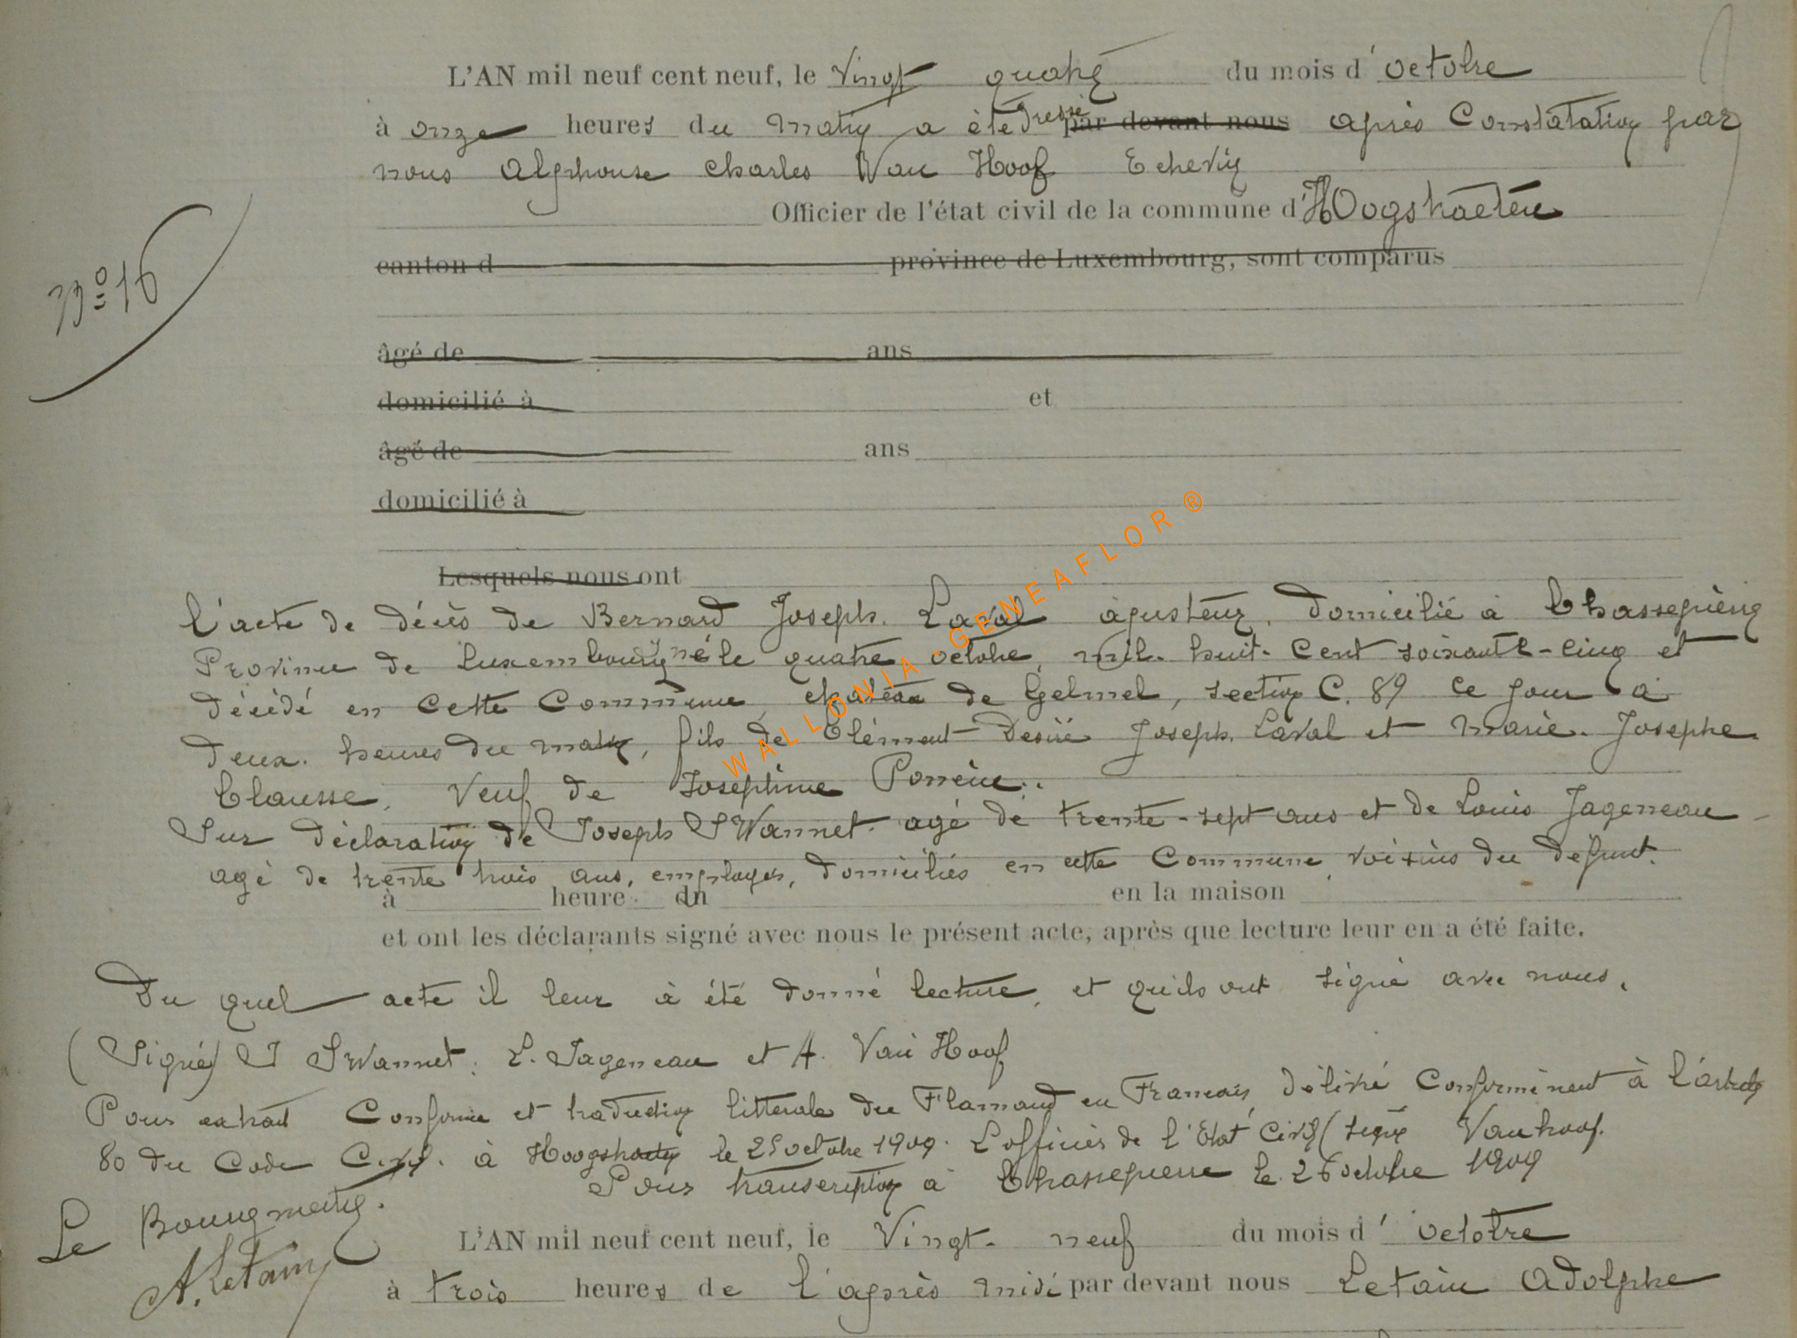 L'AN mil neuf cent neuf, le vingt quatre du mois d'octobre
à onze heures du matin a été dressé par devant nous après Constatation par
nous Alphonse Charles Van Hoof Echevin
Officier de l'état civil de la commune d'Hoogstraeten
N° 16
canton d province de Luxembourg, sont comparus
âgé de ans
domicilié à et
âgé de ans
domicilié à
Lesquels nous ont
l'acte de décès de Bernard Joseph Laval ajusteur, domicilié à Chassepierre
Province de Luxembourg né le quatre octobre, mil-huit-Cent soixante-cinq et
décédé en cette Commune, château de Gelmel, section C. 89 ce jour à
deux heures du matin, fils de Clément Désiré Joseph Laval et Marie-Josephe
Clausse, Veuf de Joséphine
Sur déclaration de Joseph SWannet agé de trente-sept ans et de Louis Jageneau
agé de trente trois ans, employés, domiciliés en cette Commune, voisins du défunt.
à heure du en la maison
et ont les déclarants signé avec nous le présent acte, après que lecture leur en a été faite.
Du quel acte il leur à été donné lecture, et qu'ils ont signé avec nous.
(Signé) J SWannet, L. Jageneau et A. Van Hoof
Pour extrait Conforme et traduction littérale du Flamand en Français, délivré Conformément à l'article
80 du Code Civil. à Hoogstraeten le 25 octobre 1909. L'officier de l'Etat Civil (signé Vanhoof.
Pour transcription à Chassepierre le 26 octobre 1909
Le Bourgmestre.
A. Letain
L'AN mil neuf cent neuf, le Vingt-neuf du mois d'octobre
à trois heures de l'après midi par devant nous Letain Adolphe
WALLONIA-GENEAFLOR®